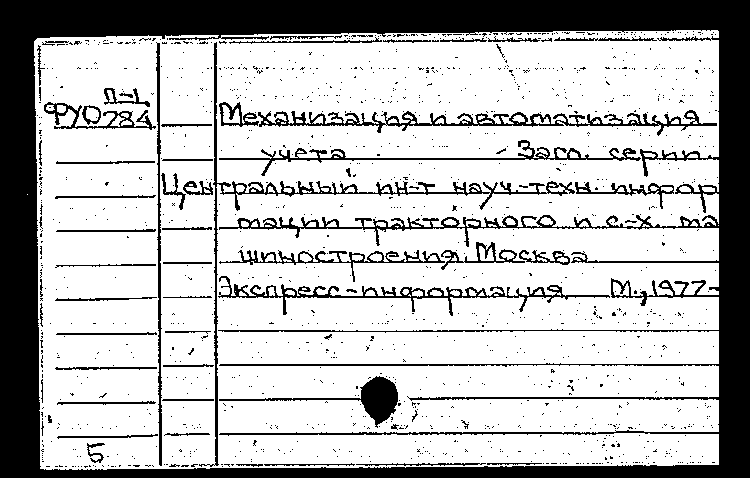 П-1
ФУО784
Механизация и автоматизация
учета - Загл. серии.
Центральный ин-т науч.-техн. инфор
мации тракторного и с.-х. ма
шиностроения. Москва
Экспресс-информация. М., 1977-
5